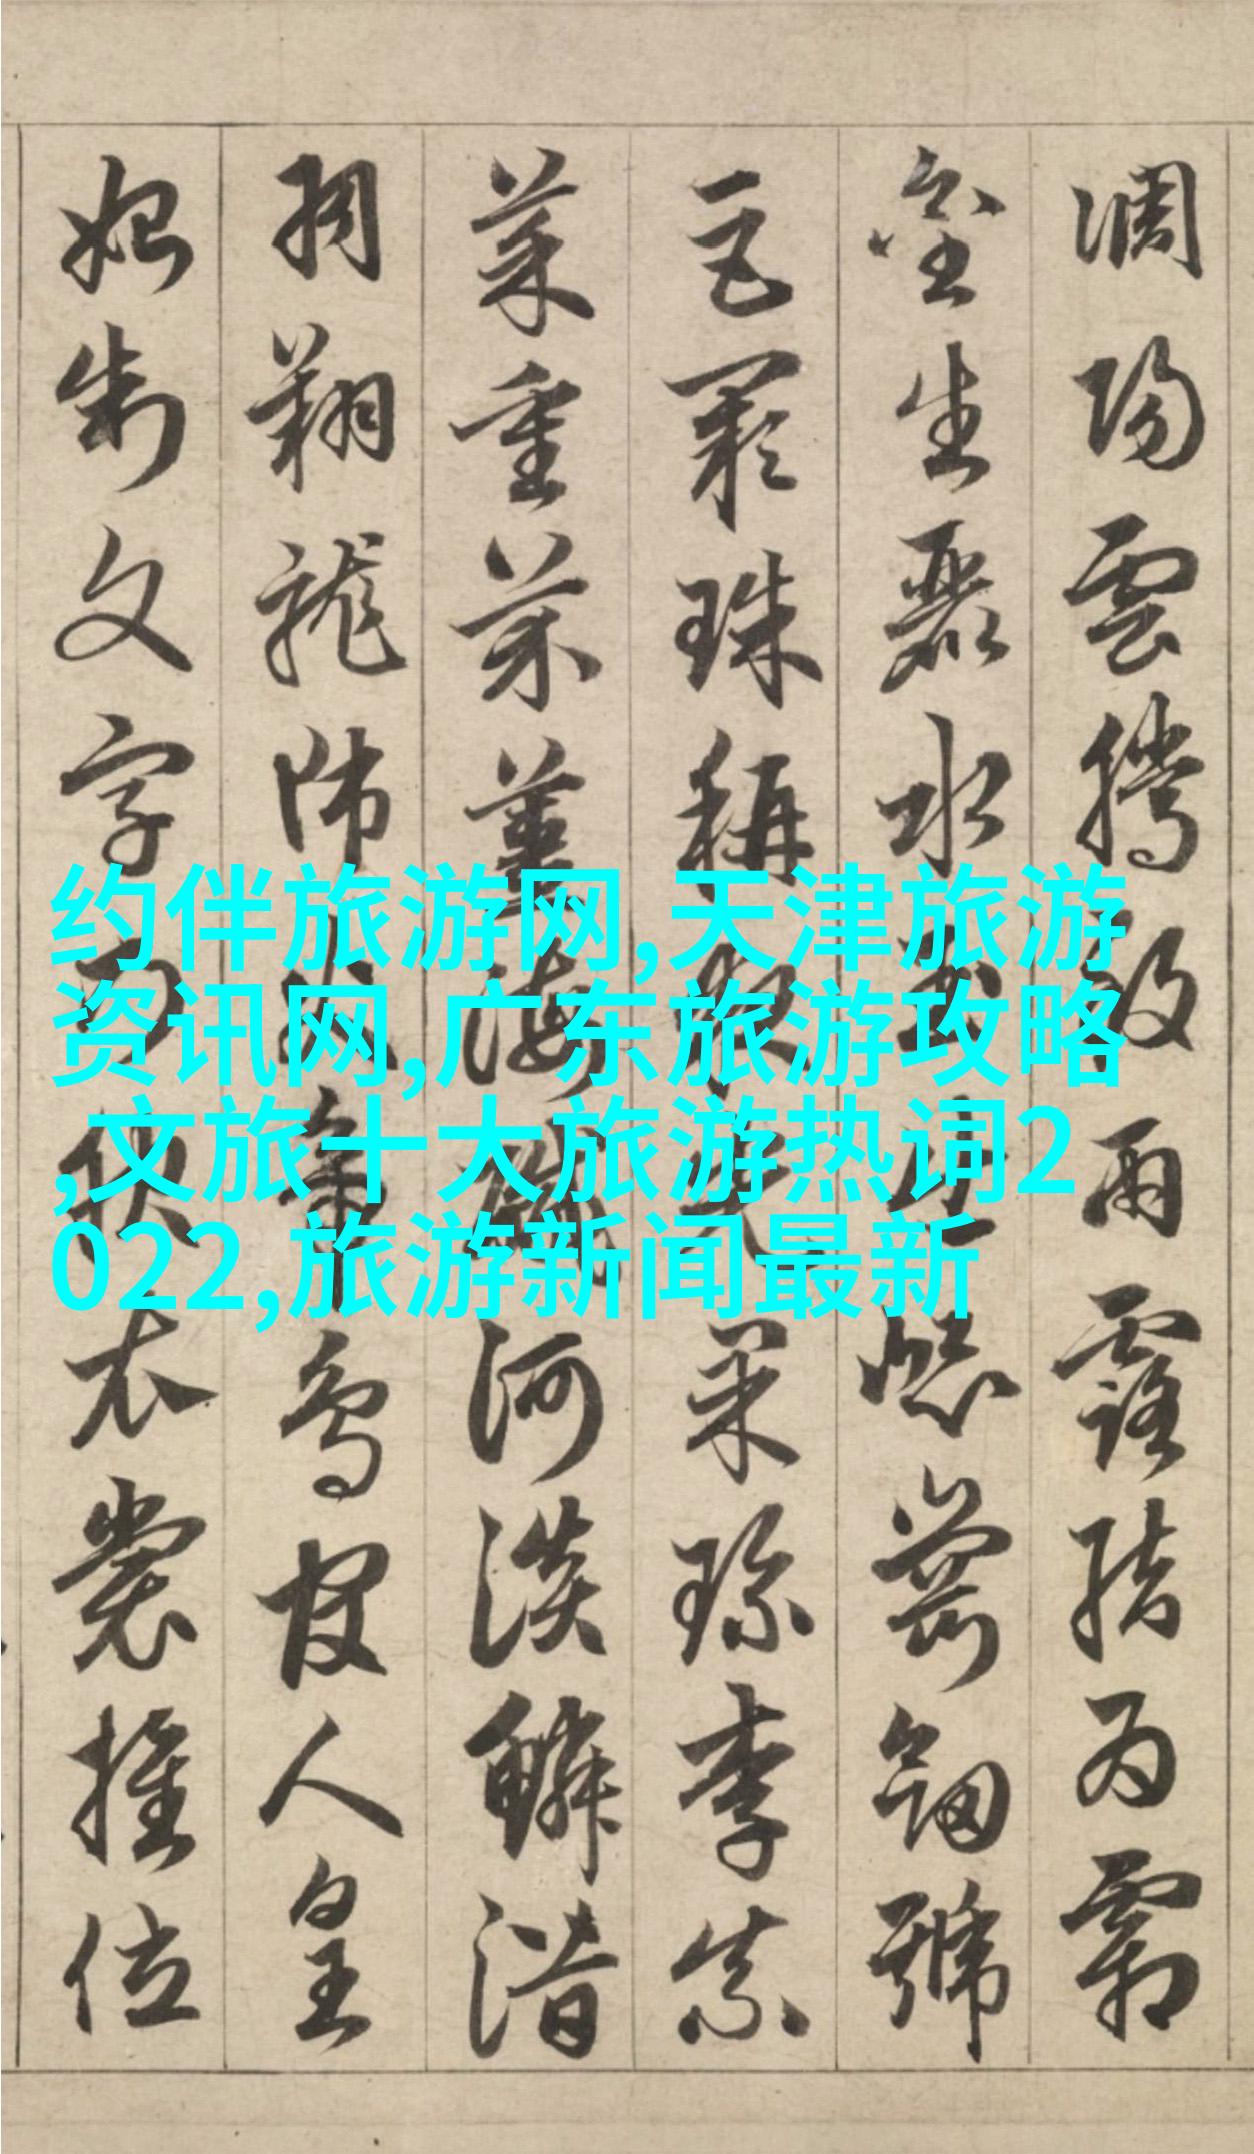 調陽雲騰致雨露結為霜
金生麗水玉出崑崗劍號
巨闕珠稱夜光果珎李柰
菜重芥薑海鹹河淡鱗潛
羽翔龍師火帝鳥官人皇
始制文字乃服衣裳推位
约伴旅游网,天津旅游
资讯网,广东旅游攻略
,文旅十大旅游热词2
022,旅游新闻最新